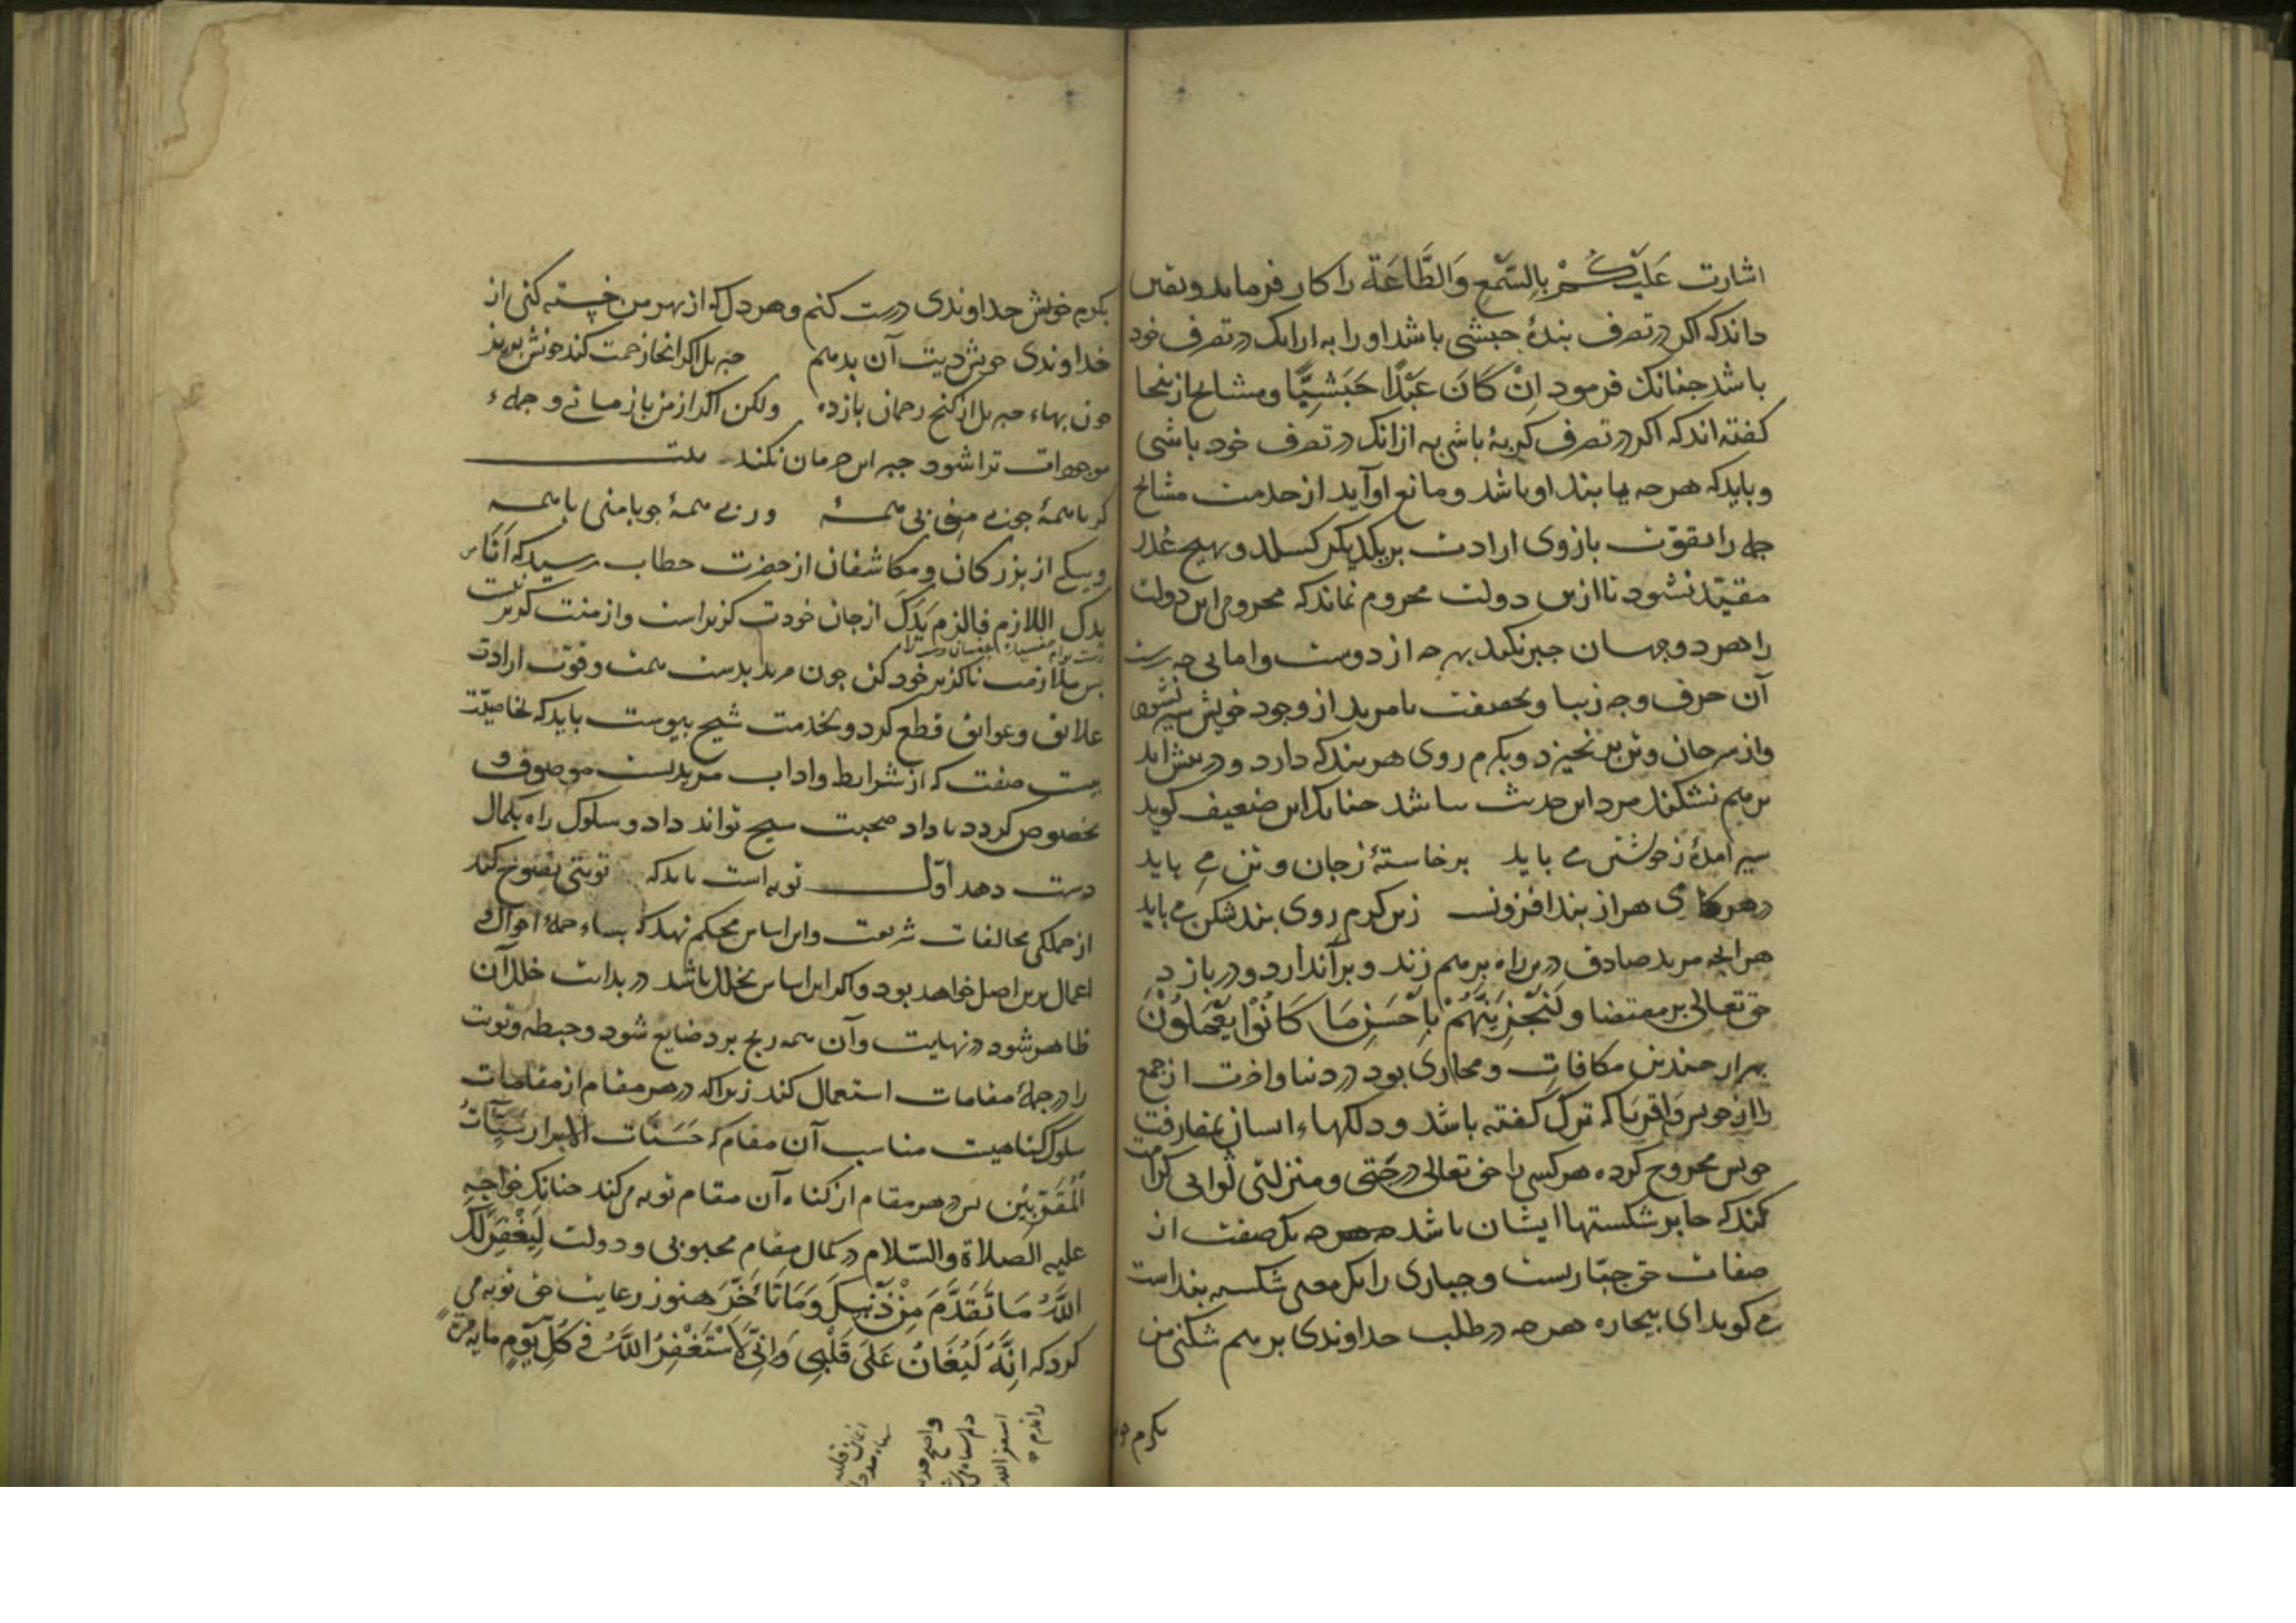 اشارت عَلَيْكُمْ بِالسَّمْعِ وَالطَّاعَةِ را کار فرماید و یقین
داند که اکر در تصرف بندهٔ حبشی باشد او را به از انک در تصرف خود
باشد جنانک فرمود اِنْ كَانَ عَبْدًا حَبَشِيًّا و مشایخ از ینجا
کفته اند که اکر در تصرف کربهٔ باشی به از انک در تصرف خود باشی
و باید که هر جه بها بند او باشد و مانع او آید از خدمت مشایخ
جمله را بقوّت بازوی ارادت بر یکدیکر کسلد و بهیچ عذر
مقیّد نشود تا ازین دولت محروم نماند که محرومی این دولت
را هر دو جهان جبر نکند بهر جه از دوست وامانی جه زشت
آن حرف و جه زیبا و بحقیقت تا مرید از وجود خویش سیر نشود
و از سر جان و تن بر نخیزد و بکرم روی هر بند که دارد و در پیش اید
برهم نشکند مرد این حدیث نباشد جنانک این ضعیف کوید
سیر امدهٔ ز خویشتن می باید برخاستهٔ ز جان و تن می باید
در هر کامی هزار بند افزونست زین کرم روی بند شکن می باید
هر انجه مرید صادق درین راه بر هم زند و بر اندازد و در بازد
حق تعالی بر مقتضا و لَنَجْزِيَنَّهُمْ بِاَحْسَنِ مَا كَانُوْا يَعْمَلُوْنَ
بهزار جندین مکافات و مجازی بود در دنیا و اخرت از جمع
را از خویش و اقربا که ترک کفته باشد و دلکهاء ایشان بمفارقت
خویش مجروح کرده هر کسی را حق تعالی درجتی و منزلتی ثوابی کرامت
کند که جابر شکستهاا ایشان باشد هر جه یک صفت از
صفات حق جبّاریست و جباری را یک معنی شکسته بند است
می کوید ای بیجاره هر جه در طلب خداوندی بر هم شکنی من
بکرم خو
بکرم خویش خداوندی درست کنم و هر دل که از بهر من خسته کنی از
خداوندی خویش دیت آن بدهم جبریل اکر انجا زحمت کند خونش بریز
خون بهاء جبریل از کنج رحمان بازده ولکن اکر از من باز مانی و جمله
موجودات ترا شود جبر این حرمان نکند بیت
کر با همهٔ جو بی منی بی همهٔ ور بی همهٔ جو با منی با همه
و یکی از بزرکان و مکاشفان از حضرت خطاب رسید که اَنَا
بدک اللازم فالزم بَدَکَ از جان خودت کزیر است و از منت کزیر نیست
بس ملازمت ناکزیر خود کن جون مرید بدست همت و قوّت ارادت
علایق و عوایق قطع کرد و بخدمت شیخ بیوست باید که بخاصیّت
بیست صفت که از شرایط و اداب مریدیست موصوف و
مخصوص کردد تا داد صحبت شیخ تواند داد و سلوک راه بکمال
دست دهد اوّل توبه است باید که توبتی نصوح کند
از جملکی مخالفات شریعت و این اساس محکم نهد که بناء جملهٔ احوال و
اعمال برین اصل خواهد بود و اکر این اساس بخلل باشد در بدایت خلل آن
ظاهر شود در نهایت و آن همه رنج برد ضایع شود و حبطه و توبت
را در جملهٔ مقامات استعمال کند زیرا که در هر مقام از مقامات
سلوک کناهیست مناسب آن مقام که حَسَنَات الابرار سَيِّآتُ
الْمُقَرَّبِيْن بس در هر مقام از کناه آن مقام توبه می کند جنانک خواجه
علیه الصلاة والسّلام در کمال مقام محبوبی و دولت لِيَغْفِرَ لَكَ
اللّٰهُ مَا تَقَدَّمَ مِنْ ذَنْبِكَ وَمَا تَأَخَّرَ هنوز رعایت حق توبه می
کرد که اِنَّهُ لَيُغَانُ عَلَى قَلْبِي وَاِنِّي لَاَسْتَغْفِرُ اللّٰهَ فِي كُلِّ يَوْمٍ مایه مَرَّةً